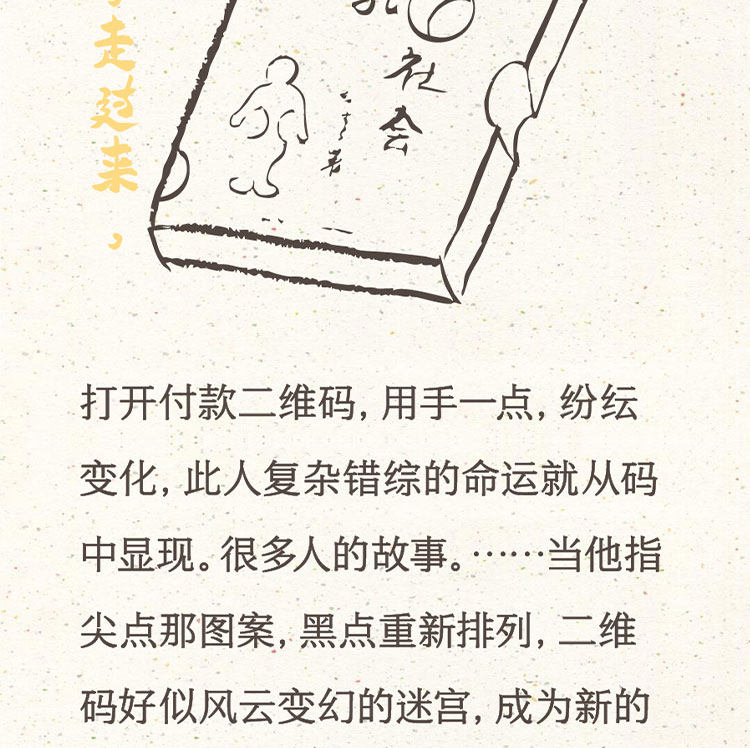 走过来，
社会
打开付款二维码，用手一点，纷纭
变化，此人复杂错综的命运就从码
中显现。很多人的故事。……当他指
尖点那图案，黑点重新排列，二维
码好似风云变幻的迷宫，成为新的